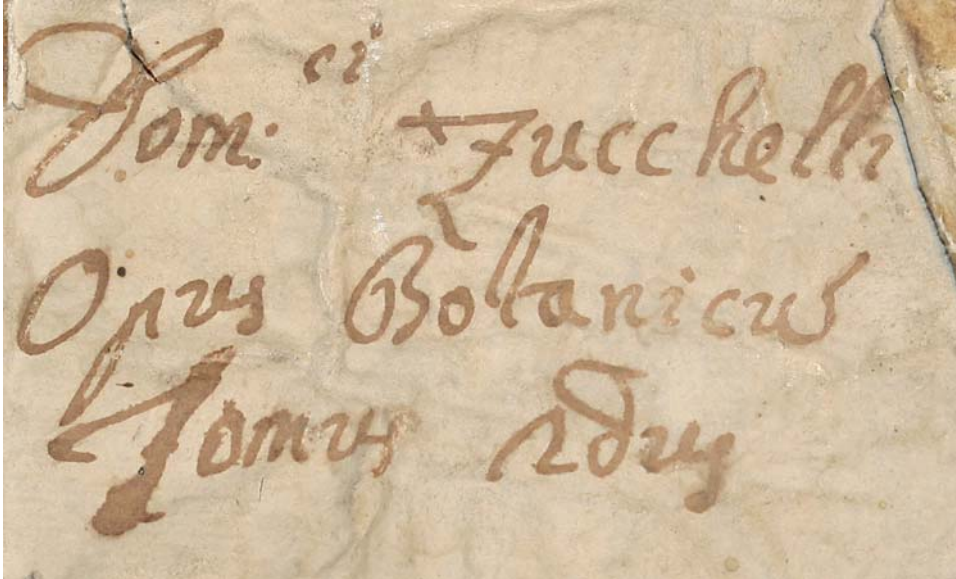 Dom:ci Zucchelli
Opus Botanicũ
Tomus 2dus